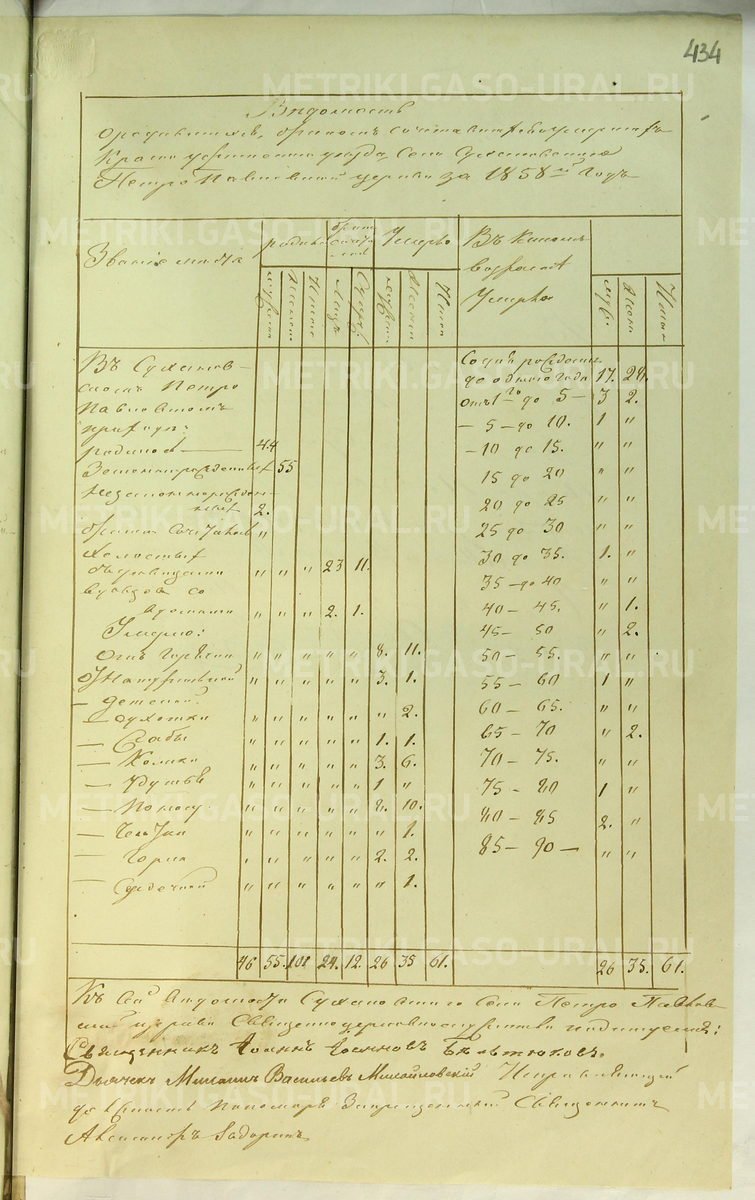 434
Вѣдомость
о родившихся, бракомъ сочетавшихся и умершихъ
Красноуфимскаго уѣзда, Села Сухановскаго
Петро Павловской церкви за 1858й Годъ
Званіе мѣста
родившихся
Умерло
Въ какомъ
возрастѣ
Умерло
Въ Суханов-
скомъ Петро
Павловскомъ
приходѣ:
родилось 44
Законнорожденныхъ 55
Незаконнорожден-
ныхъ 2.
бракомъ Сочетано "
холостыхъ
съ дѣвицами " " " 23 11.
вдовцовъ со
вдовами " " " 2. 1.
Умерло:
Отъ горячки " " " " " 8. 11.
" " " " " 3. 1.
— детской
— сухотки " " " " " " 2.
— Слабы " " " " " 1. 1.
— Колики " " " " " 3. 6.
— Удушья " " " " " 1 "
— Поносу " " " " " 8. 10.
— " " " " " " 1.
— Горла " " " " " 2. 2.
— " " " " " " 1.
46 55. 101 24. 12. 26 35 61.
Со дня рожденія
до одного года 17. 28.
отъ 1го до 5 — 3 2.
— 5 — до 10. 1 "
— 10 до 15. " "
15 до 20 " "
20 до 25 " "
25 до 30 " "
30 до 35. 1. "
35 — до 40 " "
40 — 45. " 1.
45 — 50 " 2.
50 — 55. " "
55 — 60 1 "
60 — 65. " "
65 — 70 " 2.
70 — 75. " "
75 — 80 1 "
80 — 85 2. "
85 — 90 — " "
26 35. 61.
Къ Сей Вѣдомости Сухановскаго Села Петро Павлов-
ской церкви Священноцерковнослужители подписуемся:
Священникъ Іоаннъ Іоанновъ
Дьячекъ Михаилъ Васильевъ Михайловскій Исправляющій
должность пономаря Запрещенный Священникъ
Александръ Задоринъ
METRIKI.GASO-URAL.RU